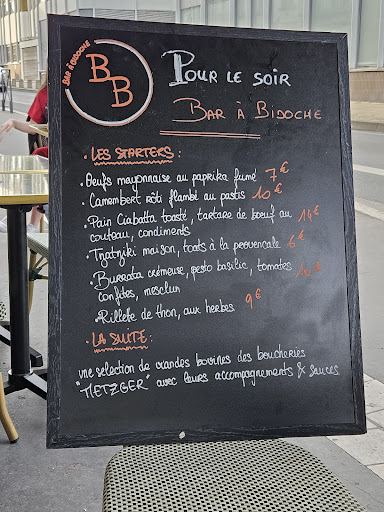 BAR À BIDOCHE
BB
POUR LE SOIR
BAR À BIDOCHE
. LES STARTERS :
. Oeufs mayonnaise au paprika fumé 7€
. Camembert rôti flambé au pastis 10€
. Pain Ciabatta toasté, tartare de boeuf au 14€
couteau, condiments
. Tzatziki maison, toasts à la provencale 6€
. Burrata crémeuse, pesto basilic, tomates 10€
confites, mesclun
. Rillette de thon, aux herbes 9€
. LA SUITE :
une selection de viandes bovines des boucheries
"METZGER" avec leurs accompagnements & sauces